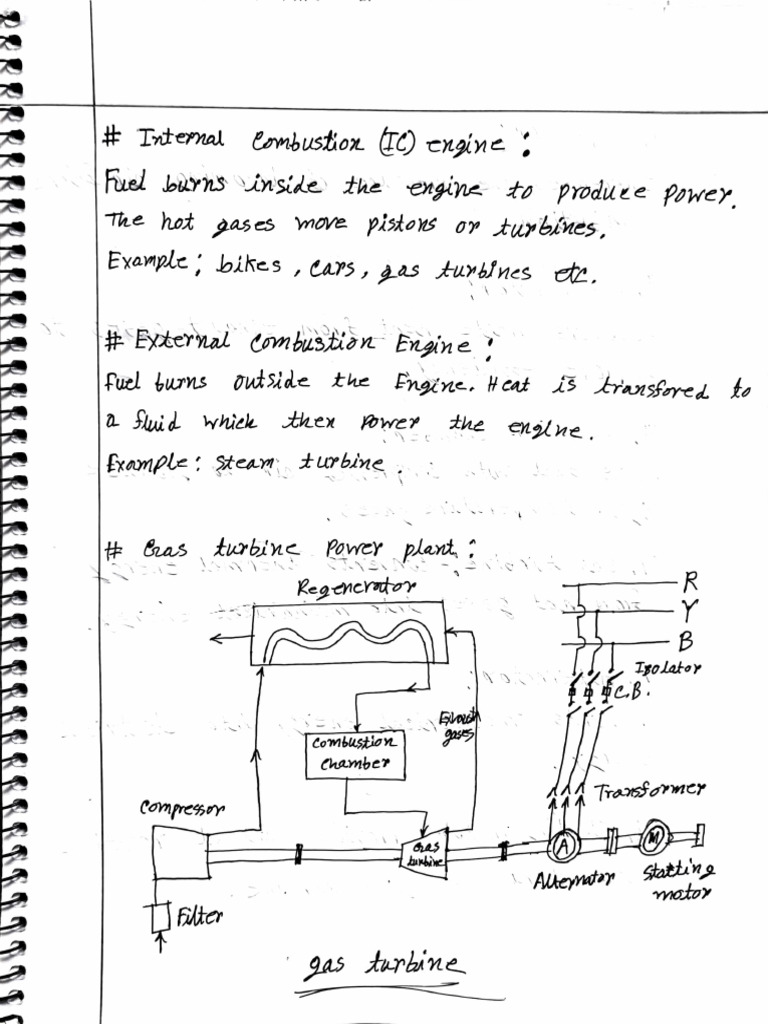 # Internal Combustion (IC) engine :
Fuel burns inside the engine to produce power.
The hot gases move pistons or turbines.
Example : bikes, cars, gas turbines etc.
# External Combustion Engine :
Fuel burns outside the Engine. Heat is transfered to
a fluid which then power the engine.
Example : steam turbine.
# Gas turbine power plant :
Regenerator
R
Y
B
Isolator
C.B.
gases
Combustion
chamber
Transformer
Compressor
Gas
turbine
A
M
Alternator
Starting
motor
Filter
gas turbine